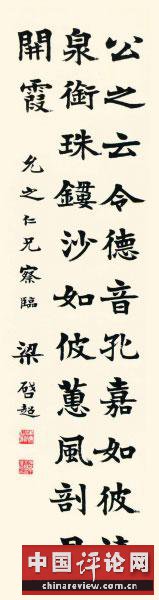 公之云令德音孔嘉如彼
泉銜珠鏤沙如彼蕙風剖
開霞
允之仁兄察臨
梁啓超
中国评论网
chinareview.com